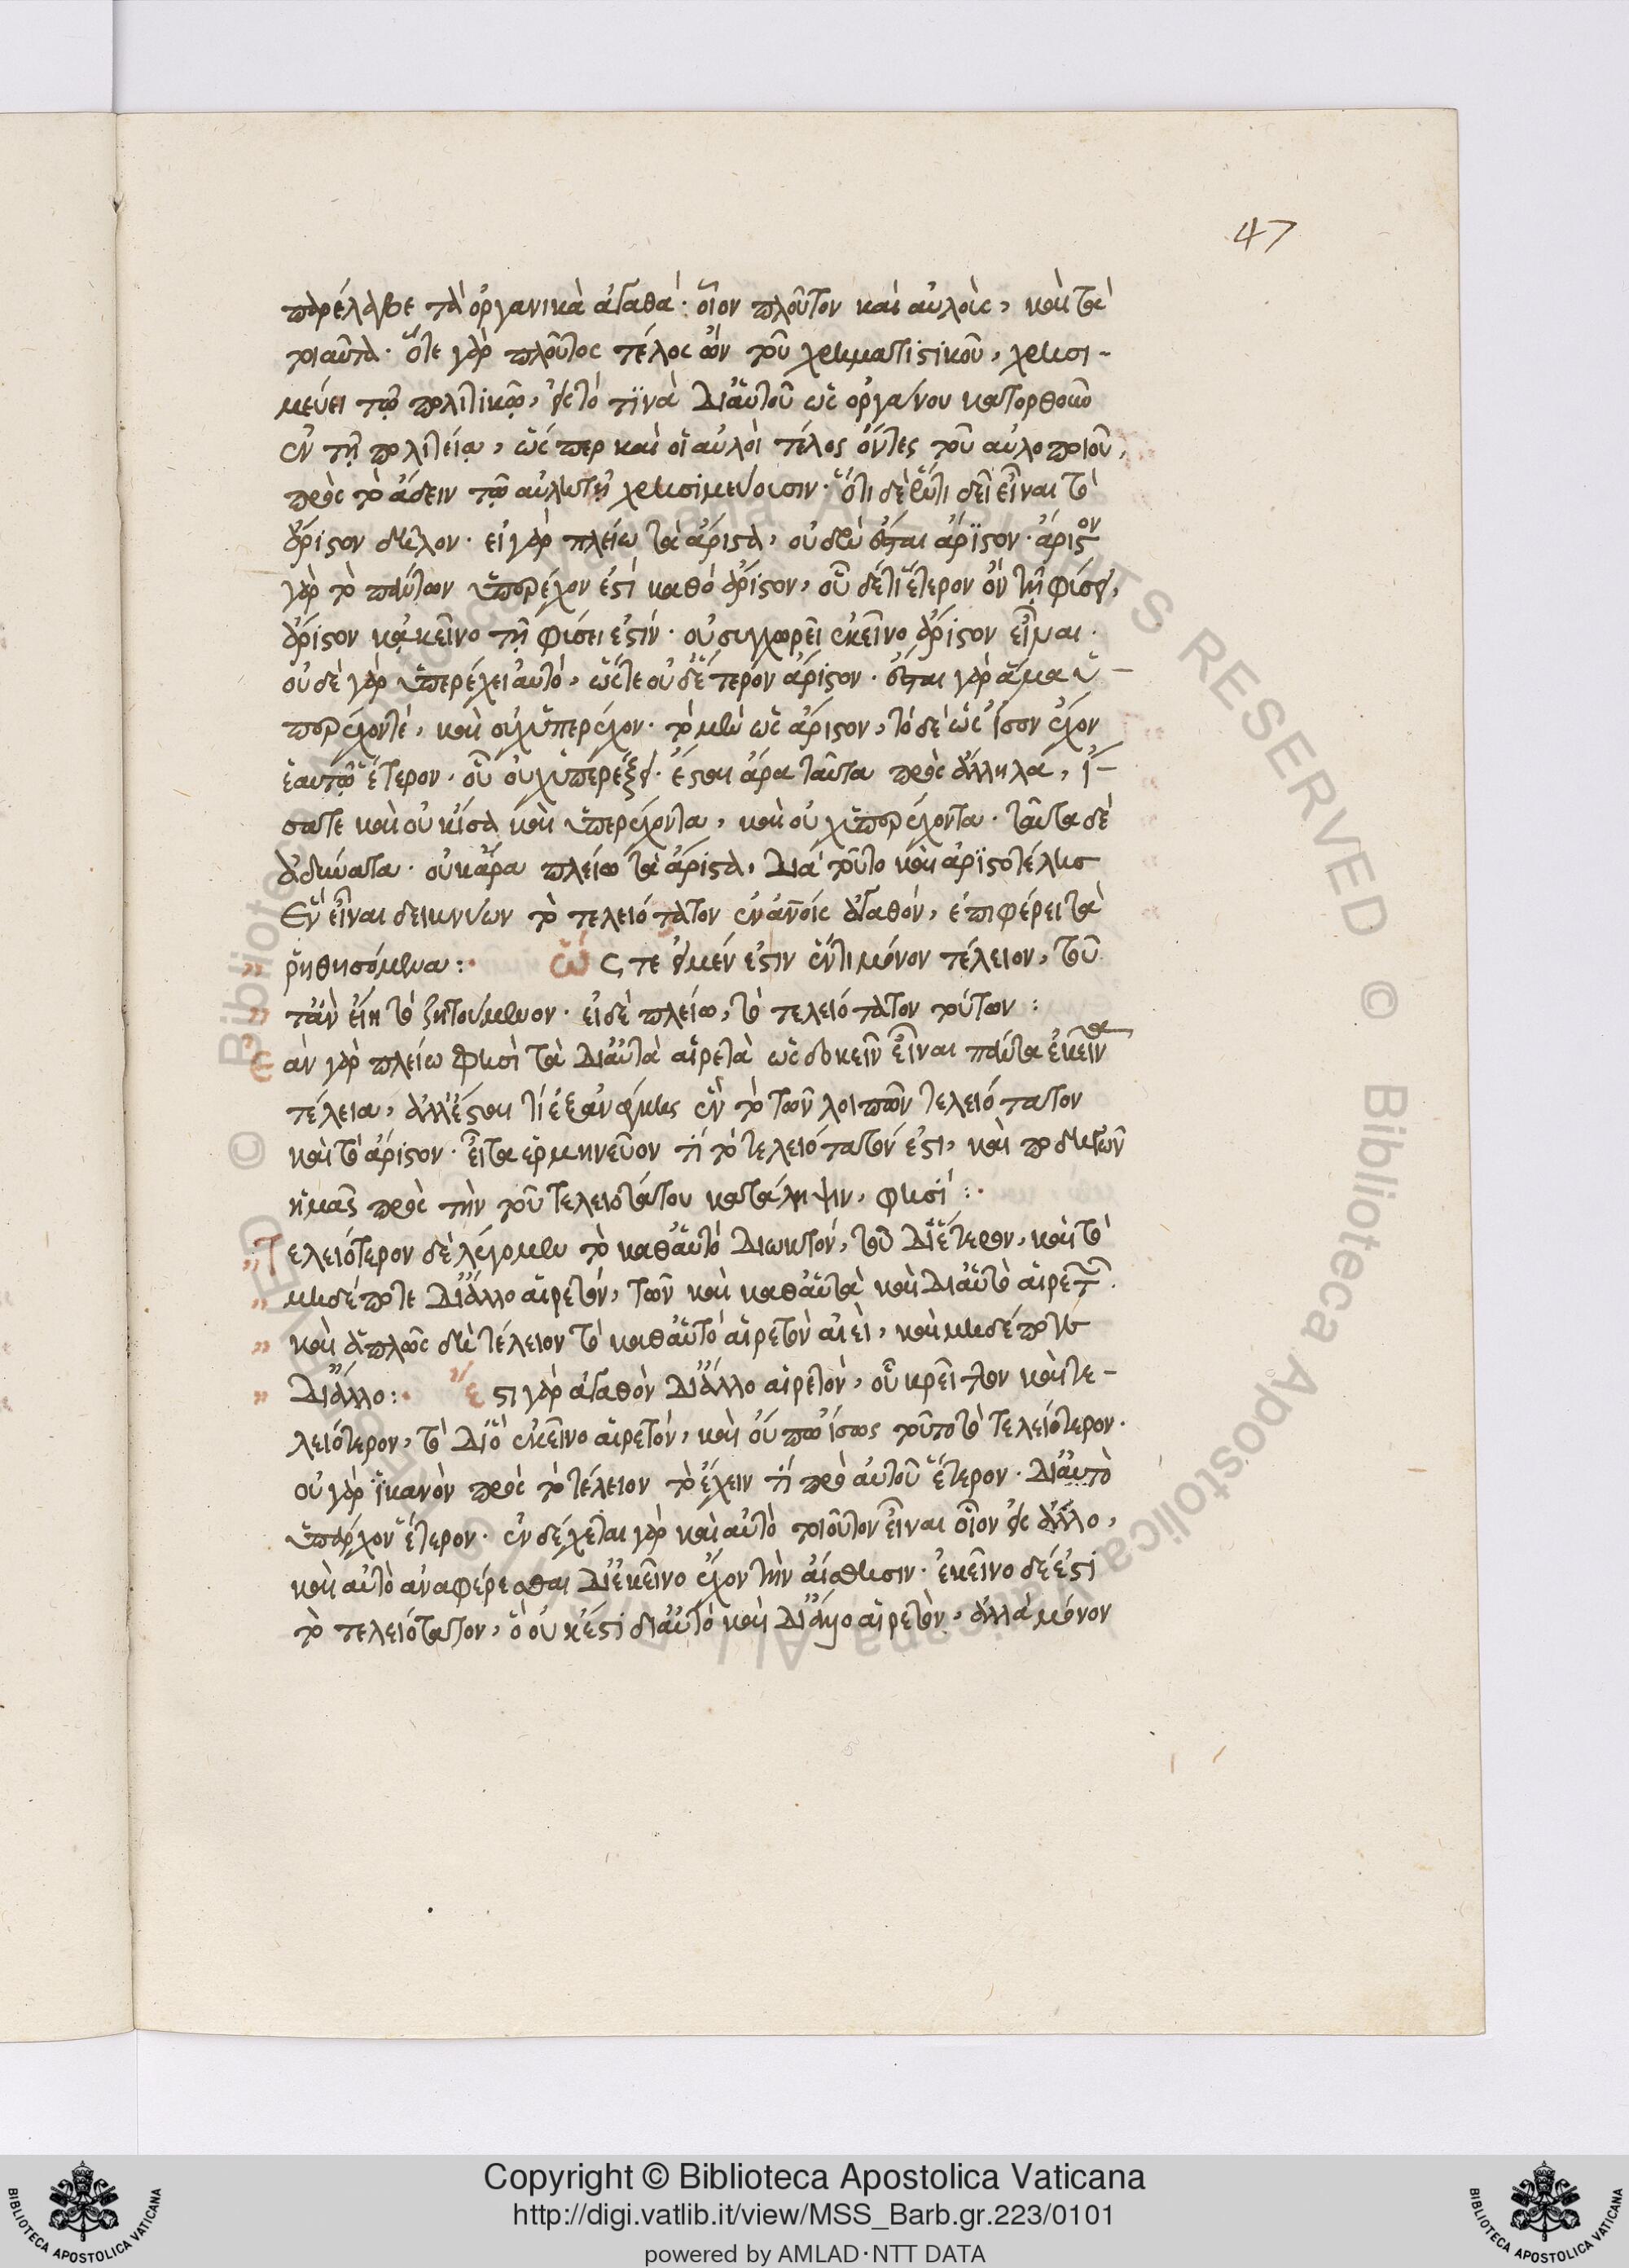 47
παρέλαβε τὰ ὀργανικὰ ἀγαθά· οἷον πλοῦτον καὶ αὐλοὺς, καὶ τὰ
τοιαῦτα. ὅτε γὰρ πλοῦτος τέλος ὢν τοῦ χρηματιστικοῦ, χρησι-
μεύει τῷ πολιτικῷ, εἰς τό τινὰ δι' αὐτοῦ ὡς ὀργάνου κατορθοῦν
ἐν τῇ πολιτείᾳ, ὥσπερ καὶ οἱ αὐλοὶ τέλος ὄντες τοῦ αὐλοποιοῦ,
πρὸς τὸ ᾄδειν τῷ αὐλητῇ χρησιμεύουσιν. ὅτι δὲ ἕν τι δεῖ εἶναι τὸ
ἄριστον δῆλον. εἰ γὰρ πλείω τὰ ἄριστα, οὐδὲν ἔσται ἄριστον. ἄριστον
γὰρ τὸ πάντων ὑπερέχον ἐστὶ καθὸ ἄριστον, οὗ δέ τι ἕτερον ὂν τῇ φύσει,
ἄριστον κἀκεῖνο τῇ φύσει ἐστίν. οὐ συγχωρεῖ ἐκεῖνο ἄριστον εἶναι.
οὐδὲ γὰρ ὑπερέχει αὐτό, ὥστε οὐδέτερον ἄριστον. ἔσται γὰρ ἅμα ὑ-
περέχοντε, καὶ οὐχ ὑπερέχον. τὸ μὲν ὡς ἄριστον, τὸ δὲ ὡς ἴσον ἔχον
ἑαυτῷ ἕτερον. οὗ οὐχ ὑπερέξει. ἔσται ἄρα ταῦτα πρὸς ἄλληλα, ἴ-
σα τε καὶ οὐκ ἴσα καὶ ὑπερέχοντα, καὶ οὐχ ὑπερέχοντα. ταῦτα δὲ
ἀδύνατα. οὐκ ἄρα πλείω τὰ ἄριστα, διὰ τοῦτο καὶ ἀριστοτέλης
ἓν εἶναι δεικνύων τὸ τελειότατον ἐν ἀν(θρώπ)οις ἀγαθόν, ἐπιφέρει τὰ
ῥηθησόμενα: Ὥστε εἰ μέν ἐστιν ἕν τι μόνον τέλειον, τοῦ
τ' ἂν εἴη τὸ ζητούμενον. εἰ δὲ πλείω, τὸ τελειότατον τούτων:
Ἐὰν γὰρ πλείω φησὶ τὰ δι' αὐτὰ αἱρετὰ ὡς δοκεῖν εἶναι πάντα ἐκεῖνα
τέλεια, ἀλλ' ἔσται τί ἐξ ἀνάγκης ἓν τὸ τῶν λοιπῶν τελειότατον
καὶ τὸ ἄριστον. εἶτα ἑρμηνεῦον τί τὸ τελειότατόν ἐστι, καὶ ποδηγῶν
ἡμᾶς πρὸς τὴν τοῦ τελειοτάτου κατάληψιν, φησί:
Τελειότερον δὲ λέγομεν τὸ καθ' αὑτὸ διωκτόν, τοῦ δι' ἕτερον, καὶ τὸ
μηδέποτε δι' ἄλλο αἱρετόν, τῶν καὶ καθ' αὑτὰ καὶ δι' αὐτὸ αἱρετῶν.
καὶ ἁπλῶς δὴ τέλειον τὸ καθ' αὑτὸ αἱρετὸν ἀιεὶ, καὶ μηδέποτε
δι' ἄλλο: Ἔστι γὰρ ἀγαθὸν δι' ἄλλο αἱρετὸν, οὗ κρεῖττον καὶ τε-
λειότερον, τὸ δι' ὃ ἐκεῖνο αἱρετόν, καὶ οὔπω ἴσως τοῦτο τὸ τελειότερον.
οὐ γὰρ ἱκανὸν πρὸς τὸ τέλειον τὸ ἔχειν τί πρὸ αὐτοῦ ἕτερον. δι' αὐτὸ
ὑπάρχον ἕτερον. ἐνδέχεται γὰρ καὶ αὐτὸ τοιοῦτον εἶναι οἷον εἰς ἄλλο,
καὶ αὐτὸ ἀναφέρεσθαι δι' ἐκεῖνο ἔχον τὴν αἵρεσιν. ἐκεῖνο δέ ἐστι
τὸ τελειότατον, ὃ οὐκ ἔστι δι' αὐτὸ καὶ δι' ἄλλο αἱρετὸν, ἀλλὰ μόνον
Copyright © Biblioteca Apostolica Vaticana
http://digi.vatlib.it/view/MSS_Barb.gr.223/0101
powered by AMLAD·NTT DATA